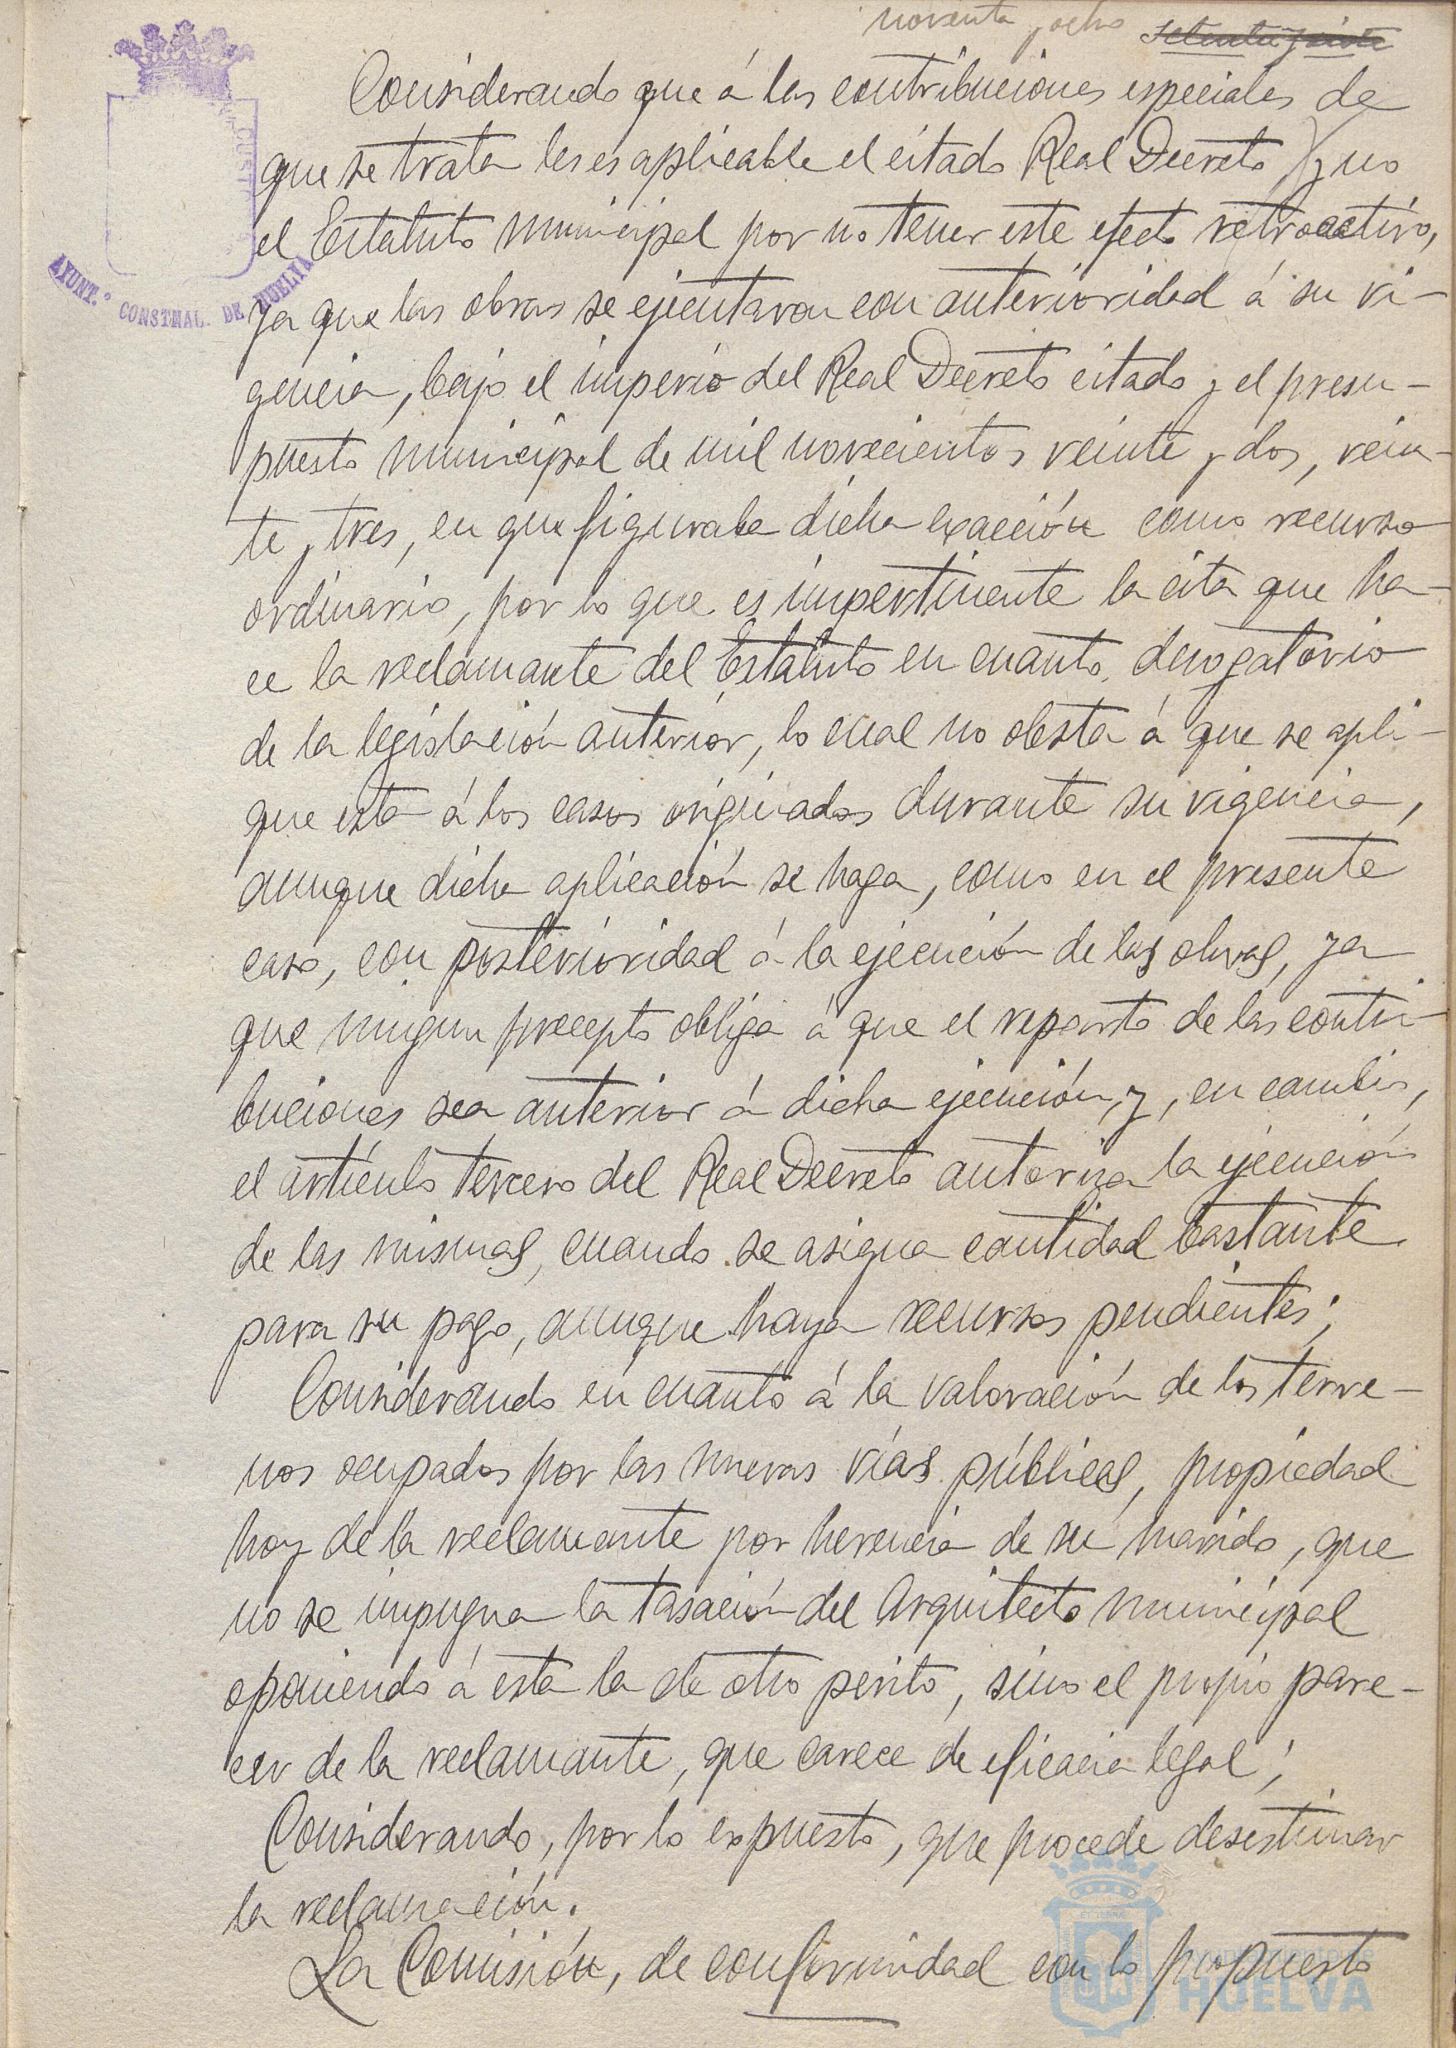 noventa y ocho
Considerando que á las contribuciones especiales de
que se trata les es aplicable el citado Real Decreto, y no
el Estatuto municipal por no tener este efecto retroactivo,
AYUNT.º CONSTNAL. DE HUELVA
ya que las obras se ejecutaron con anterioridad á su vi-
gencia, bajo el imperio del Real Decreto citado y el presu-
puesto municipal de mil novecientos veinte y dos, vein-
te y tres, en que figuraba dicha exacción como recurso
ordinario, por lo que es impertinente la cita que ha-
ce la reclamante del Estatuto en cuanto derogatorio
de la legislación anterior, lo cual no obsta á que se apli-
que esta á los casos originados durante su vigencia,
aunque dicha aplicación se haga, como en el presente
caso, con posterioridad á la ejecución de las obras, ya
que ningun precepto obliga á que el reparto de las contri-
buciones sea anterior á dicha ejecución, y, en cambio,
el artículo tercero del Real Decreto autoriza la ejecución
de las mismas, cuando se asigna cantidad bastante
para su pago, aunque haya recursos pendientes;
Considerando en cuanto á la valoración de los terre-
nos ocupados por las nuevas vías públicas, propiedad
hoy de la reclamante por herencia de su marido, que
no se impugna la tasación del Arquitecto municipal
oponiendo á esta la de otro perito, sino el propio pare-
cer de la reclamante, que carece de eficacia legal;
Considerando, por lo expuesto, que procede desestimar
la reclamación.
La Comisión, de conformidad con lo propuesto
Ayuntamiento de
HUELVA